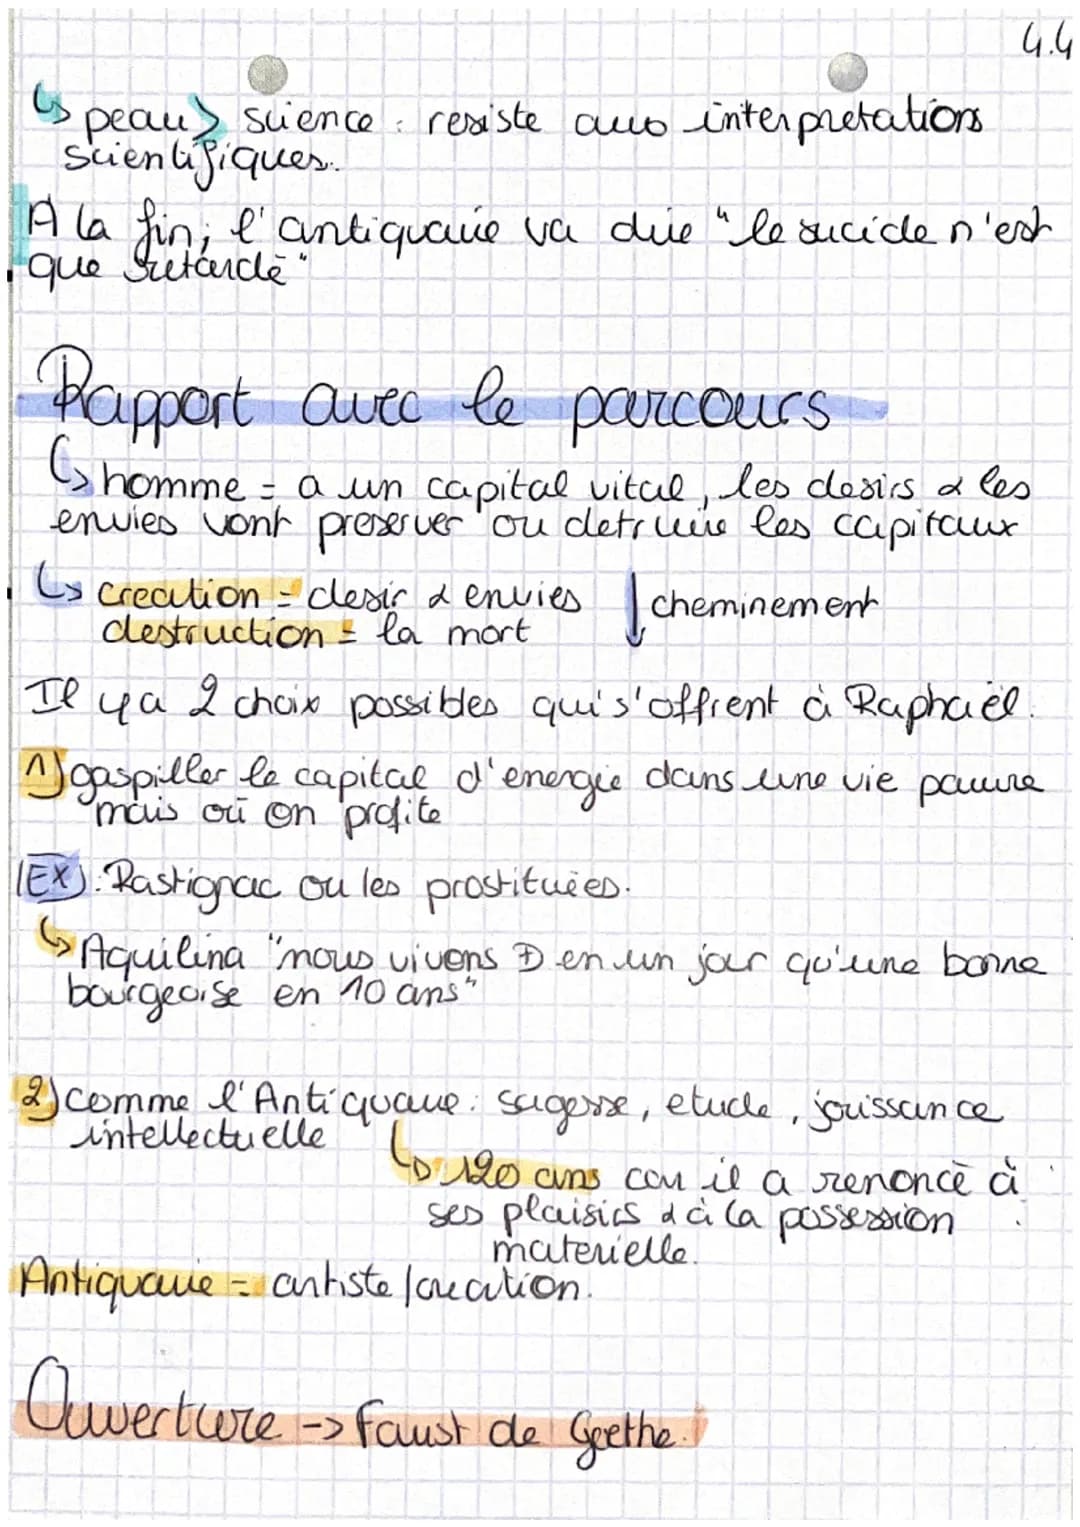 4.4
↳ peau > science : resiste aux interpretations
scientifiques.
A la fin, l'antiquaire va dire "le sucide n'est
que retardé"
Rapport avec le parcours
↳ homme = a un capital vital, les desirs & les
envies vont preserver ou detruire les capitaux
↳ creation = desir & envies ↓ cheminement
destruction = la mort
Il y a 2 choix possibles qui s'offrent à Raphaël.
1) gaspiller le capital d'energie dans une vie pauvre
mais où on profite
(EX): Rastignac ou les prostituées.
↳ Aquilina "nous vivons + en un jour qu'une bonne
bourgeoise en 10 ans"
2) comme l'Antiquaire: sagesse, etude, jouissance
intellectuelle
↳ 120 ans car il a renoncé à
ses plaisirs & à la possession
materielle.
Antiquaire = artiste/creation.
Ouverture -> Faust de Goethe.